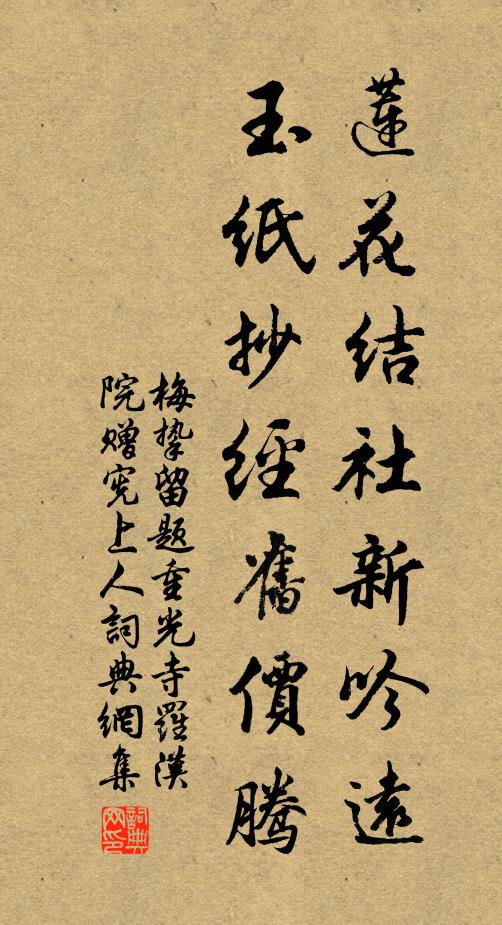 蓮花結社新吟遠
玉紙抄經舊價騰
梅摯留題重光寺羅漢
院贈宪上人詞典網集
詞典
网印